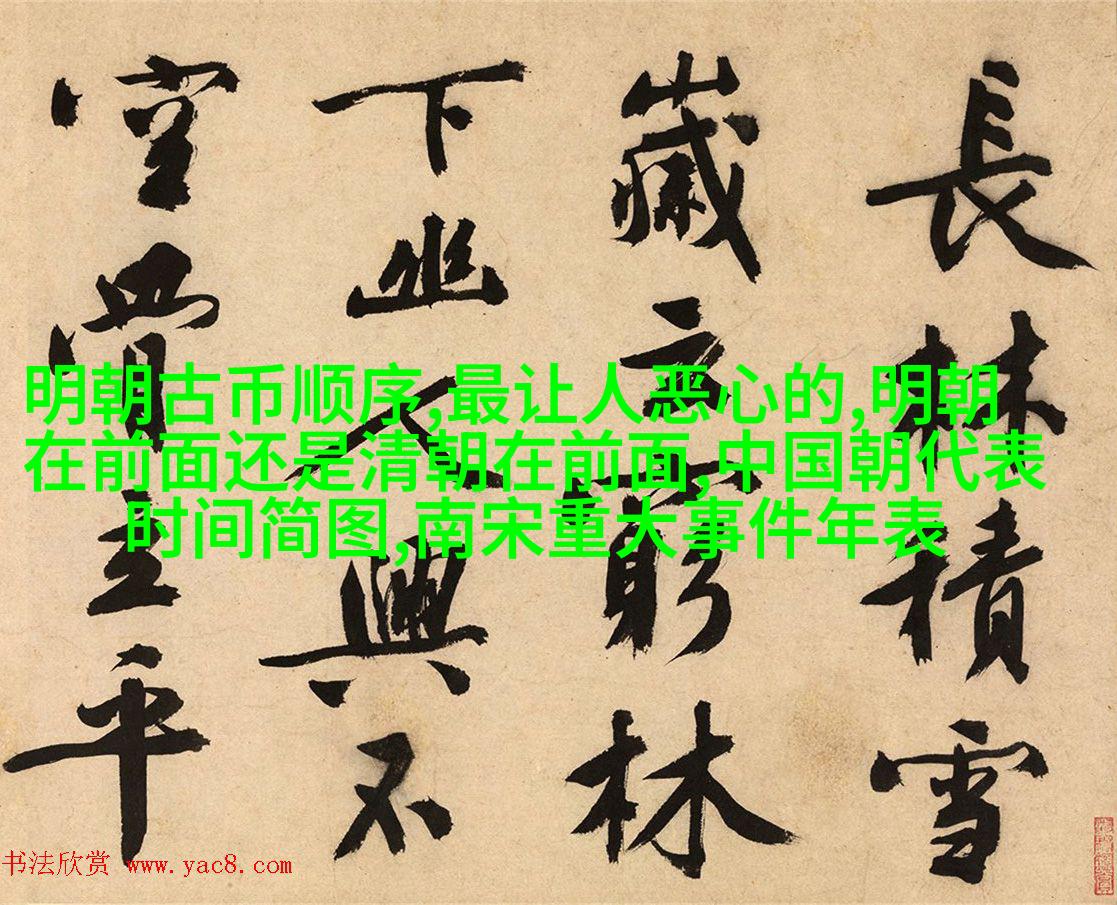 長林積雪
歲云窮林
下幽人興不
空主平
明朝古币顺序,最让人恶心的,明朝
在前面还是清朝在前面,中国朝代表
时间简图,南宋重大事件年表
书法欣赏 www.yac8.com